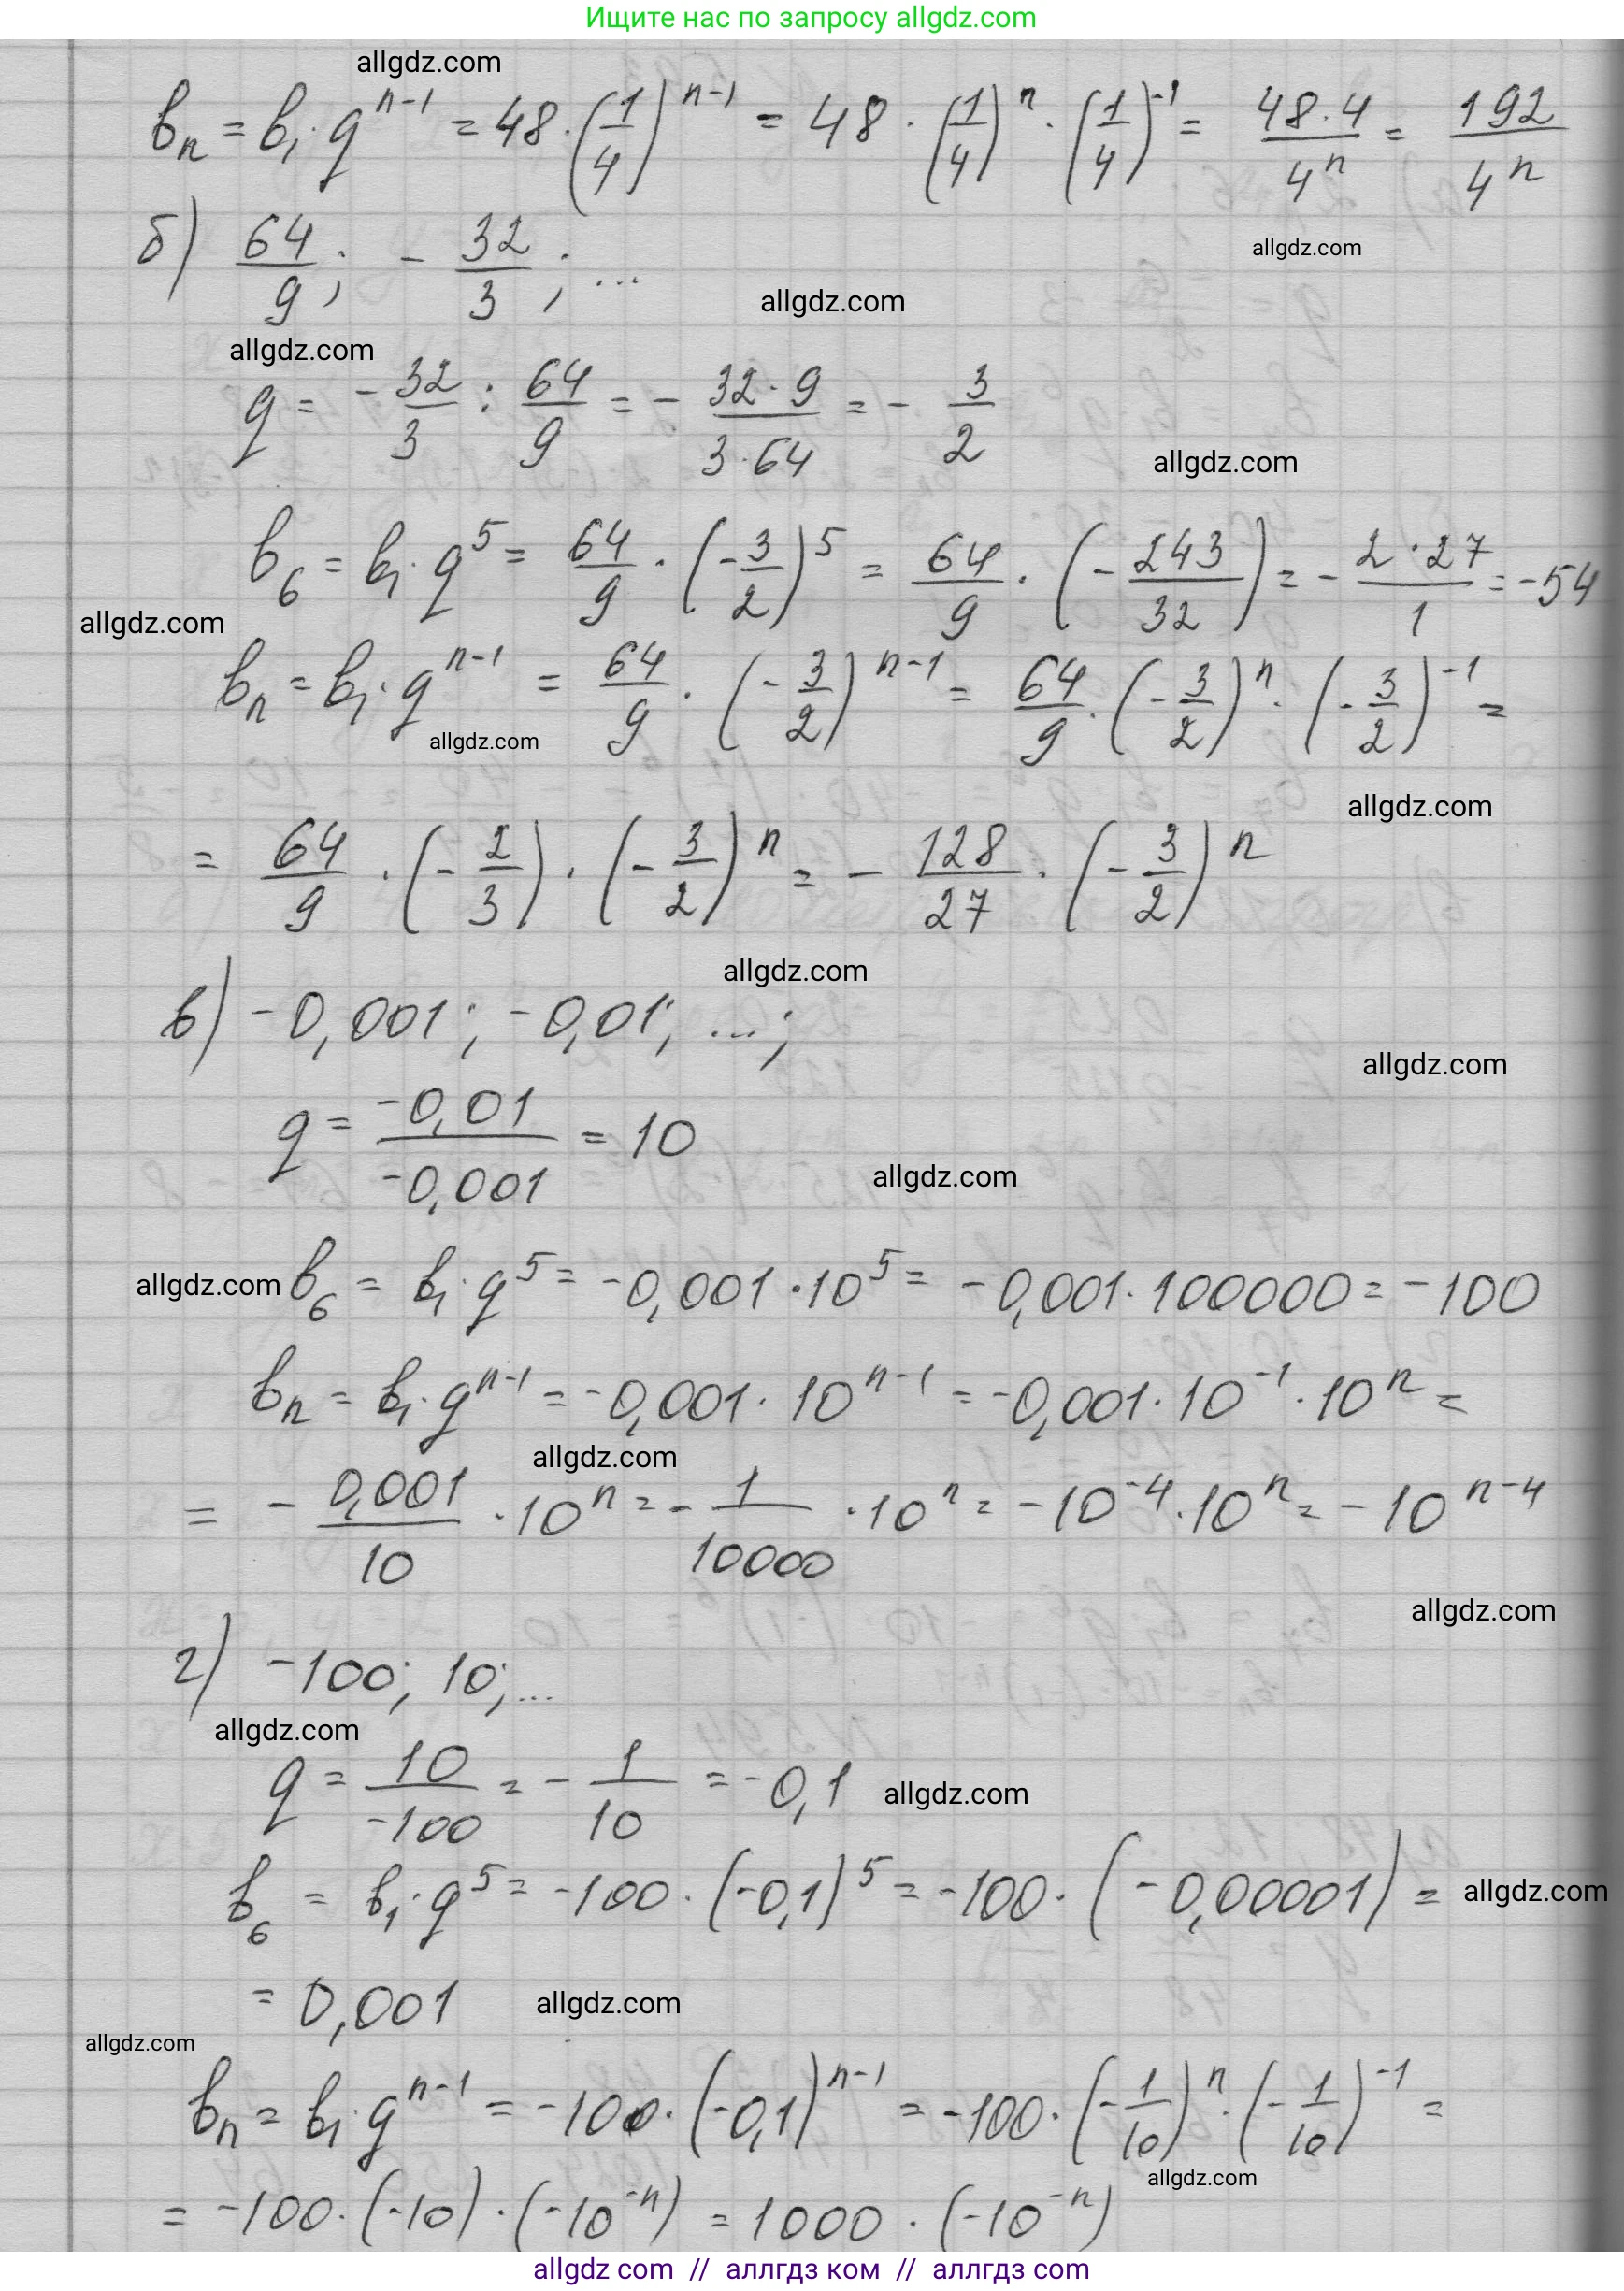 Ищите нас по запросу allgdz.com
allgdz.com
bₙ = b₁ · qⁿ⁻¹ = 48 · (1/4)ⁿ⁻¹ = 48 · (1/4)ⁿ · (1/4)⁻¹ = 48·4/4ⁿ = 192/4ⁿ
allgdz.com
б) 64/9; - 32/3; ...
allgdz.com
allgdz.com
q = - 32/3 : 64/9 = - 32·9/3·64 = - 3/2
allgdz.com
b₆ = b₁ · q⁵ = 64/9 · (-3/2)⁵ = 64/9 · (-243/32) = - 2·27/1 = -54
allgdz.com
bₙ = b₁ · qⁿ⁻¹ = 64/9 · (-3/2)ⁿ⁻¹ = 64/9 · (-3/2)ⁿ · (-3/2)⁻¹ =
allgdz.com
allgdz.com
= 64/9 · (-2/3) · (-3/2)ⁿ = - 128/27 · (-3/2)ⁿ
allgdz.com
в) -0,001; -0,01; ...;
allgdz.com
q = -0,01/-0,001 = 10
allgdz.com
allgdz.com b₆ = b₁ · q⁵ = -0,001 · 10⁵ = -0,001 · 100000 = -100
bₙ = b₁ · qⁿ⁻¹ = -0,001 · 10ⁿ⁻¹ = -0,001 · 10⁻¹ · 10ⁿ =
allgdz.com
= - 0,001/10 · 10ⁿ = - 1/10000 · 10ⁿ = -10⁻⁴ · 10ⁿ = -10ⁿ⁻⁴
allgdz.com
г) -100; 10; ...
allgdz.com
q = 10/-100 = - 1/10 = -0,1 allgdz.com
b₆ = b₁ · q⁵ = -100 · (-0,1)⁵ = -100 · (-0,00001) = allgdz.com
= 0,001 allgdz.com
allgdz.com
bₙ = b₁ · qⁿ⁻¹ = -100 · (-0,1)ⁿ⁻¹ = -100 · (-1/10)ⁿ · (-1/10)⁻¹ =
allgdz.com
= -100 · (-10) · (-10⁻ⁿ) = 1000 · (-10⁻ⁿ)
allgdz.com // аллгдз ком // аллгдз com